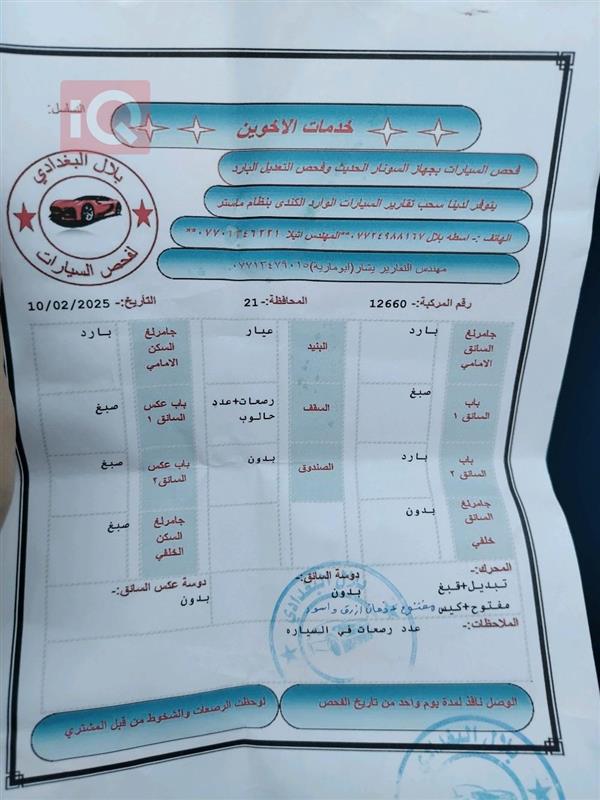 التسلسل:
iQ
خدمات الاخوين
فحص السيارات بجهاز السونار الحديث وفحص التعديل البارد
يتوفر لدينا سحب تقارير السيارات الوارد الكندي بنظام ماستر
الهاتف :- اسطه بلال ٠٧٧٢٤٩٨٨١٦٧**المهندس اثيلا ٠٧٧٠١٣٤٦٢٢١**
مهندس التقارير يشار(ابومارية)٠٧٧١٣٤٧٩٠١٥
بلال البغدادي
لفحص السيارات
رقم المركبة:- 12660
المحافظة:-21
التأريخ:- 10/02/2025
جامرلغ السائق الامامي
بارد
البنيد
عيار
جامرلغ السكن الامامي
بارد
باب السائق ١
صبغ
السقف
رصعات+عدد حالوب
باب عكس السائق ١
صبغ
باب السائق ٢
بارد
الصندوق
بدون
باب عكس السائق٢
صبغ
جامرلغ السائق خلفي
بدون
جامرلغ السكن الخلفي
صبغ
المحرك:-
تبديل+قبغ
مفتوح+كبس مفتوح دخان ازرق واسود
دوسة السائق:-
بدون
دوسة عكس السائق:-
بدون
الملاحظات:-
عدد رصعات في السياره
بلال البغدادي
الوصل نافذ لمدة يوم واحد من تاريخ الفحص
لوحظت الرصعات والشخوط من قبل المشتري
بلال البغدادي